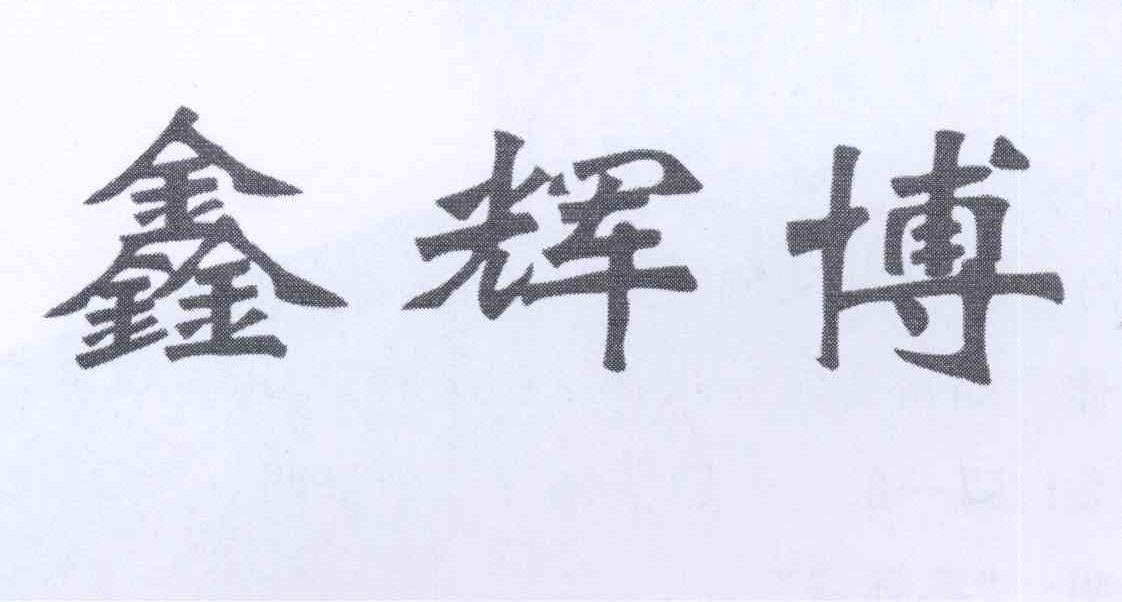 鑫辉博